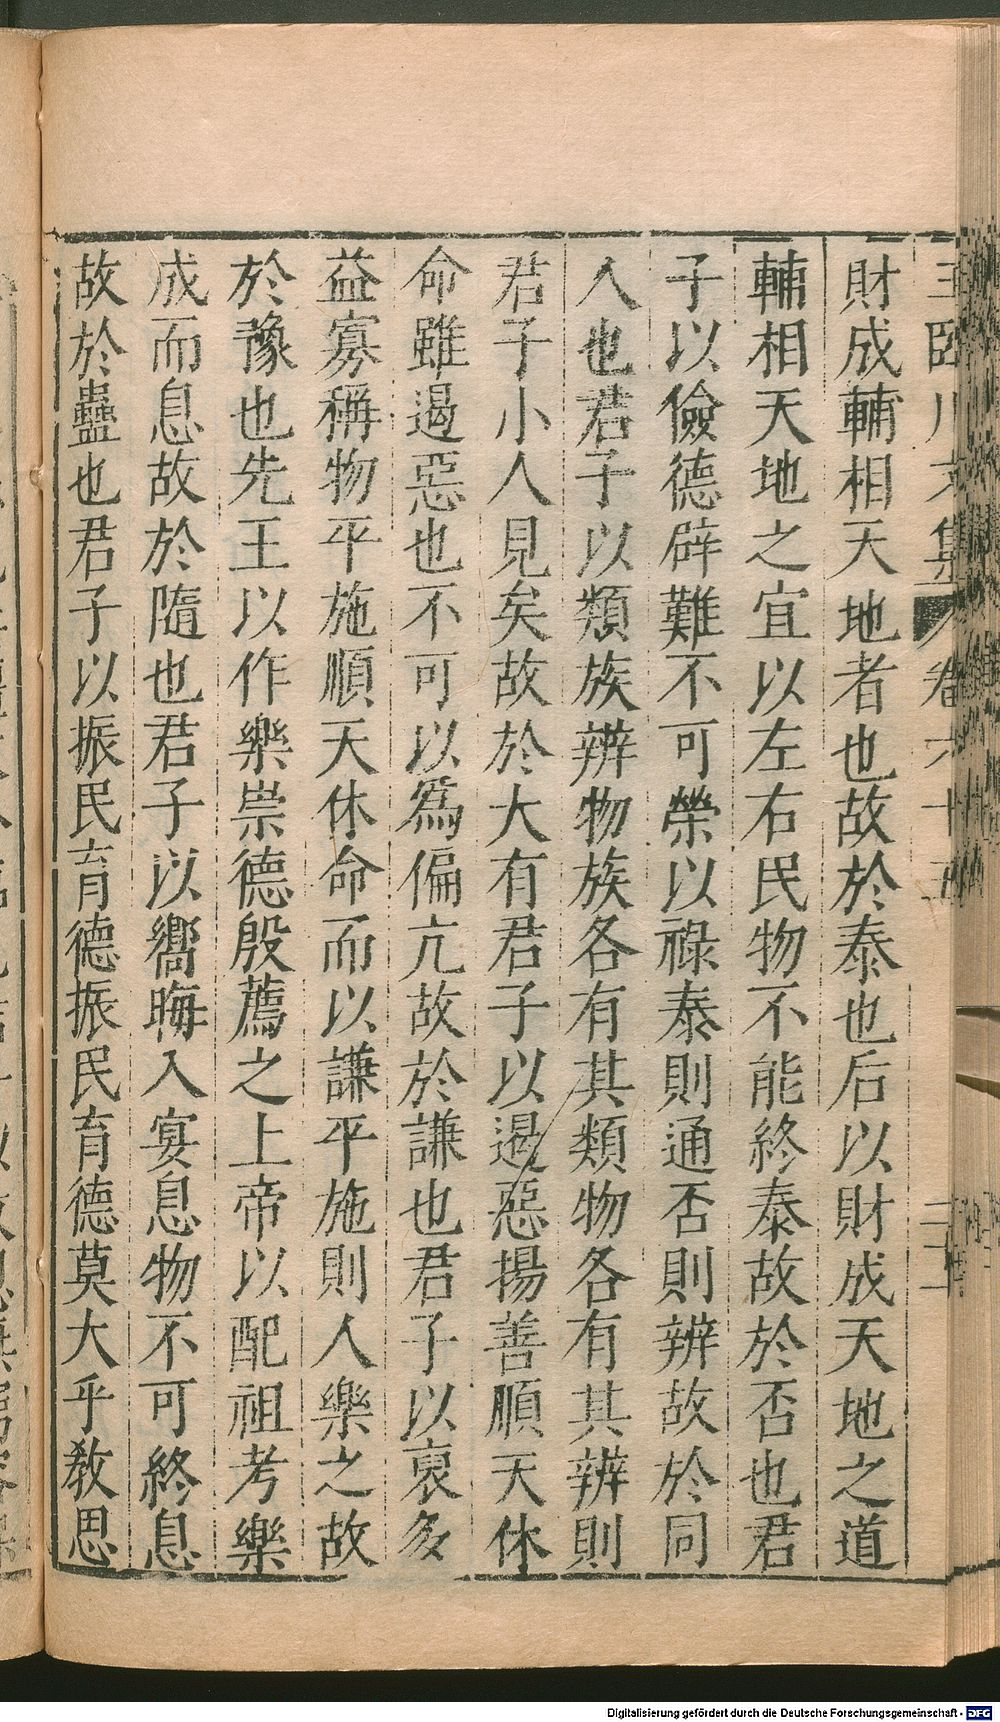 王臨川文集 卷六十五 三二
財成輔相天地者也故於泰也后以財成天地之道
輔相天地之宜以左右民物不能終泰故於否也君
子以儉德辟難不可榮以祿泰則通否則辨故於同
人也君子以類族辨物族各有其類物各有其辨則
君子小人見矣故於大有君子以遏惡揚善順天休
命雖遏惡也不可以為偏亢故於謙也君子以裒多
益寡稱物平施順天休命而以謙平施則人樂之故
於豫也先王以作樂崇德殷薦之上帝以配祖考樂
成而息故於隨也君子以嚮晦入宴息物不可終息
故於蠱也君子以振民育德振民育德莫大乎教思
Digitalisierung gefördert durch die Deutsche Forschungsgemeinschaft - DFG